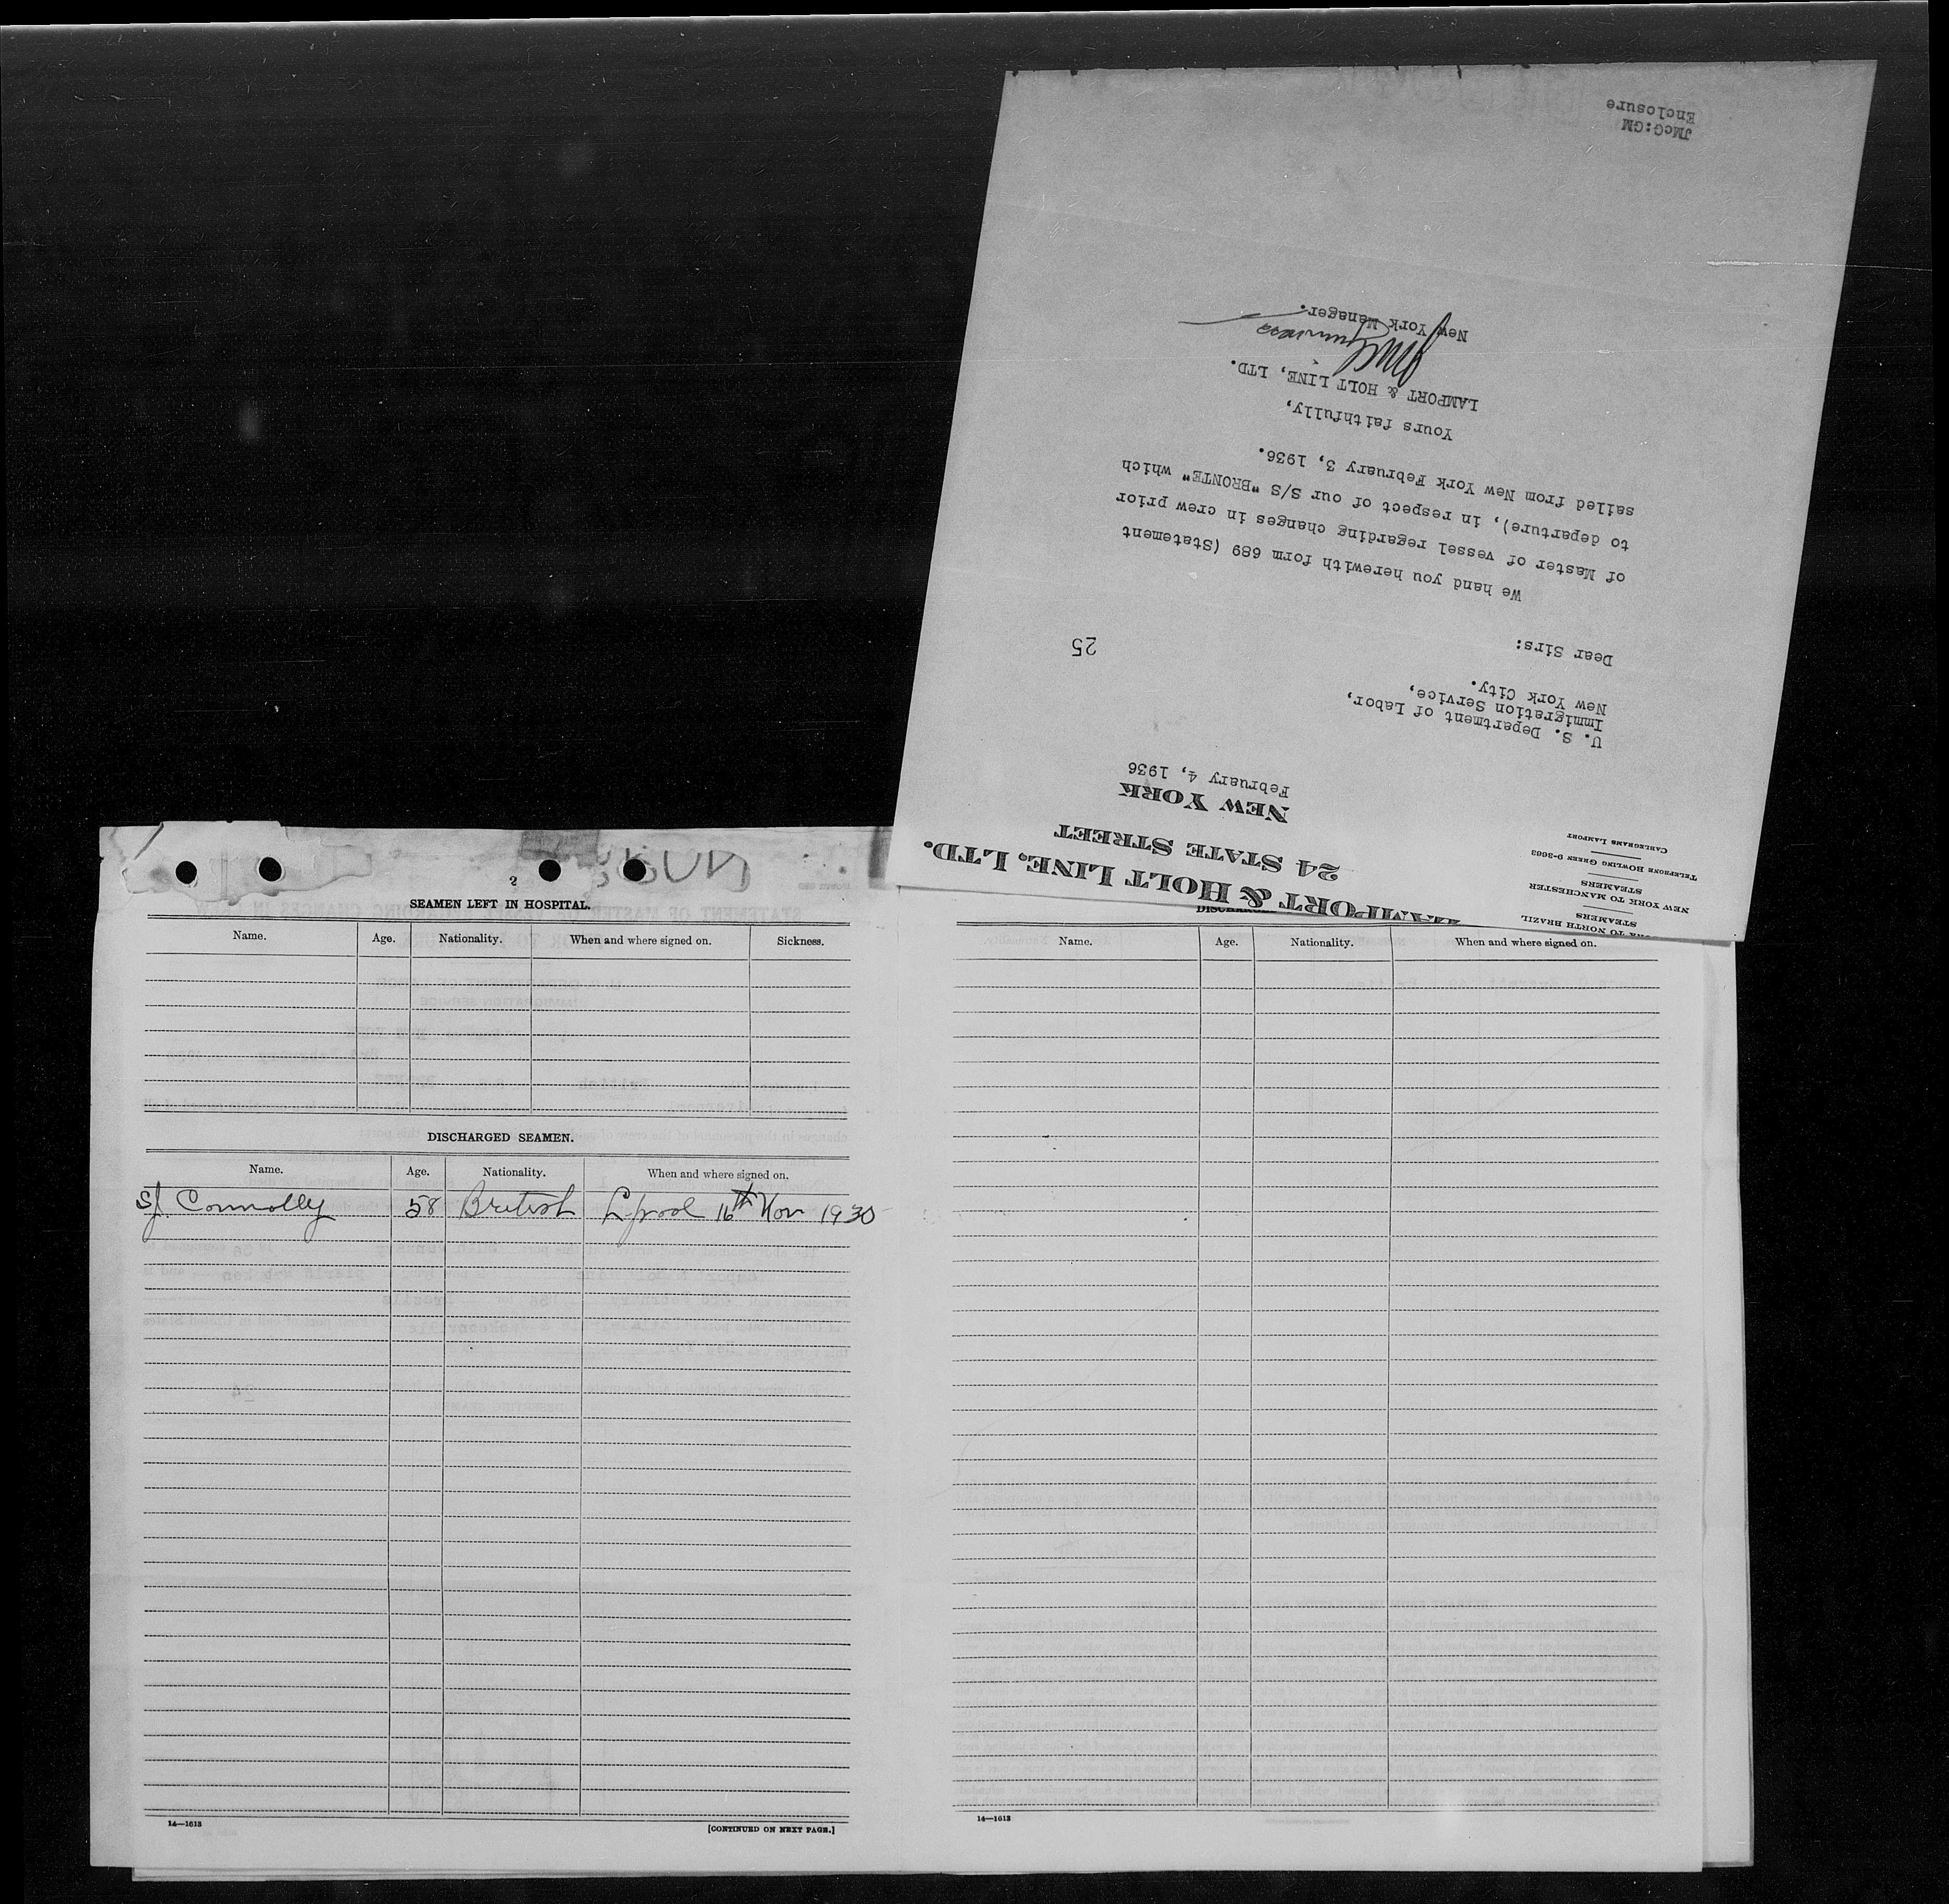 LAMPORT & HOLT LINE, LTD.
24 STATE STREET
NEW YORK
TO NORTH BRAZIL
STEAMERS
NEW YORK TO MANCHESTER
STEAMERS
TELEPHONE BOWLING GREEN 9-3663
CABLEGRAMS LAMPORT
February 4, 1936
U. S. Department of Labor,
Immigration Service,
New York City.
25
Dear Sirs:
We hand you herewith form 689 (Statement
of Master of vessel regarding changes in crew prior
to departure), in respect of our S/S "BRONTE" which
sailed from New York February 3, 1936.
Yours faithfully,
LAMPORT & HOLT LINE, LTD.
New York Manager.
JMcG:GM
Enclosure
2
SEAMEN LEFT IN HOSPITAL.
Name. Age. Nationality. When and where signed on. Sickness.
DISCHARGED SEAMEN.
Name. Age. Nationality. When and where signed on.
SJ. Connolly 58 British L'pool 16th Nov 1930
14—1613 [CONTINUED ON NEXT PAGE.]
Name. Age. Nationality. When and where signed on.
14—1613